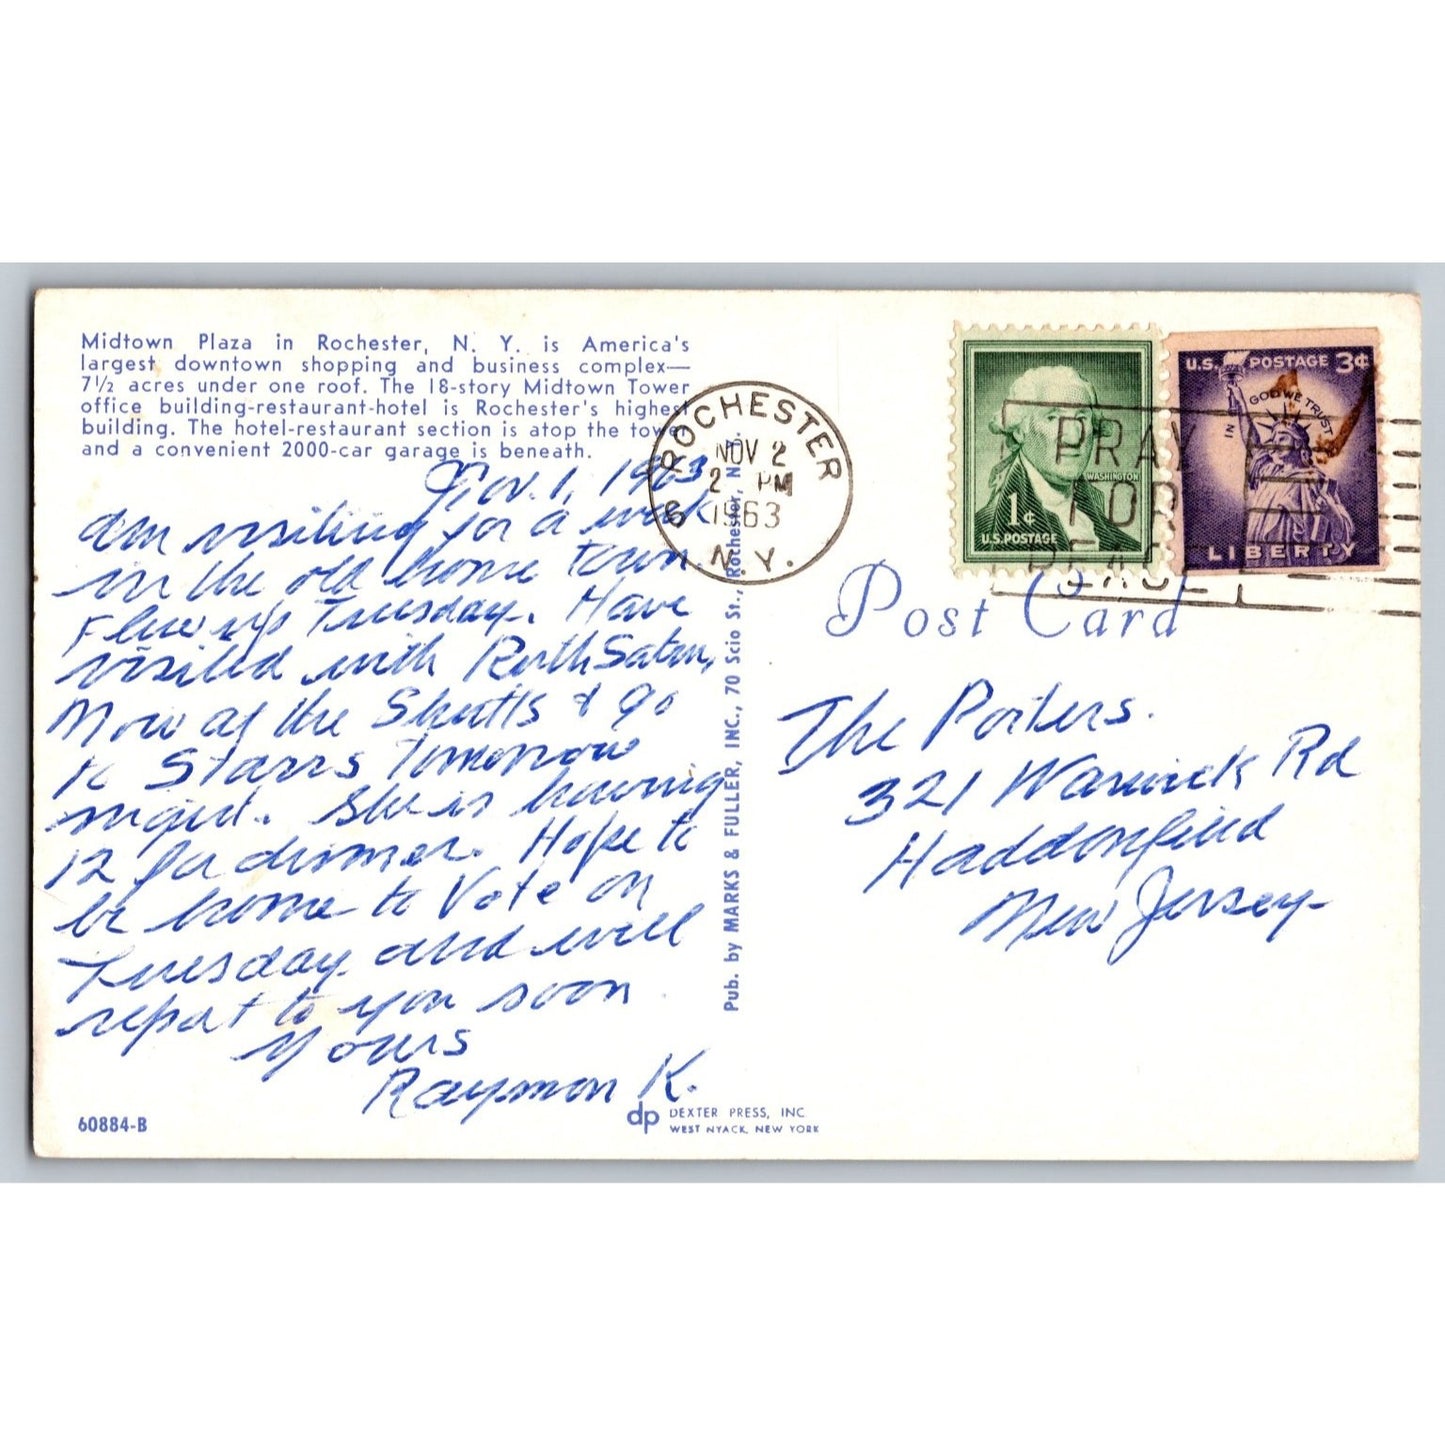 Midtown Plaza in Rochester, N. Y. is America's
largest downtown shopping and business complex—
7½ acres under one roof. The 18-story Midtown Tower
office building-restaurant-hotel is Rochester's highest
building. The hotel-restaurant section is atop the tower
and a convenient 2000-car garage is beneath.
Nov. 1, 1963
Am visiting for a week
in the old home town.
Flew up Tuesday. Have
visited with Ruth
Now at the Shutts & go
to Starrs Tomorrow
night. She is having
12 for dinner. Hope to
be home to Vote on
Tuesday and will
report to you soon
Yours
Raymon K.
60884-B
dp DEXTER PRESS, INC
WEST NYACK, NEW YORK
Pub. by MARKS & FULLER, INC., 70 Scio St., Rochester, N.Y.
ROCHESTER
NOV 2
2 PM
1963
N.Y.
6
WASHINGTON
1¢
U.S. POSTAGE
U.S. POSTAGE 3¢
IN GOD WE TRUST
LIBERTY
PRAY
FOR
PEACE
Post Card
The Porters.
321 Warwick Rd
Haddonfield
New Jersey